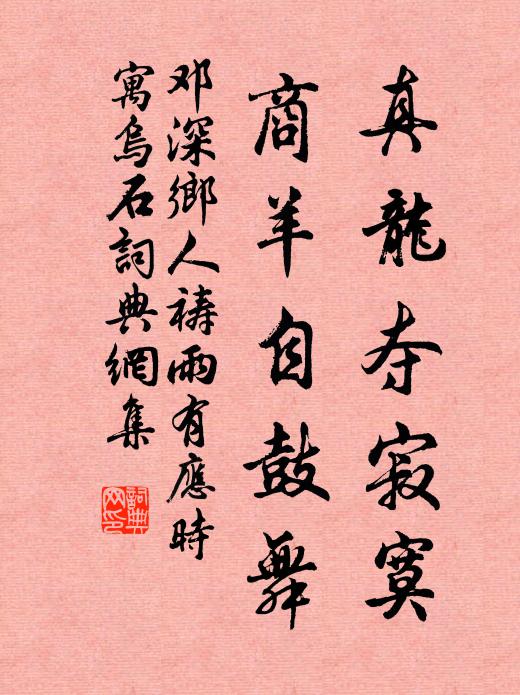 真龍本寂寞
商羊自鼓舞
邓深鄉人禱雨有應時
寓烏石詞典網集
詞典网印